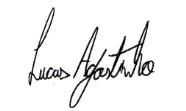 Lucas Agostinho